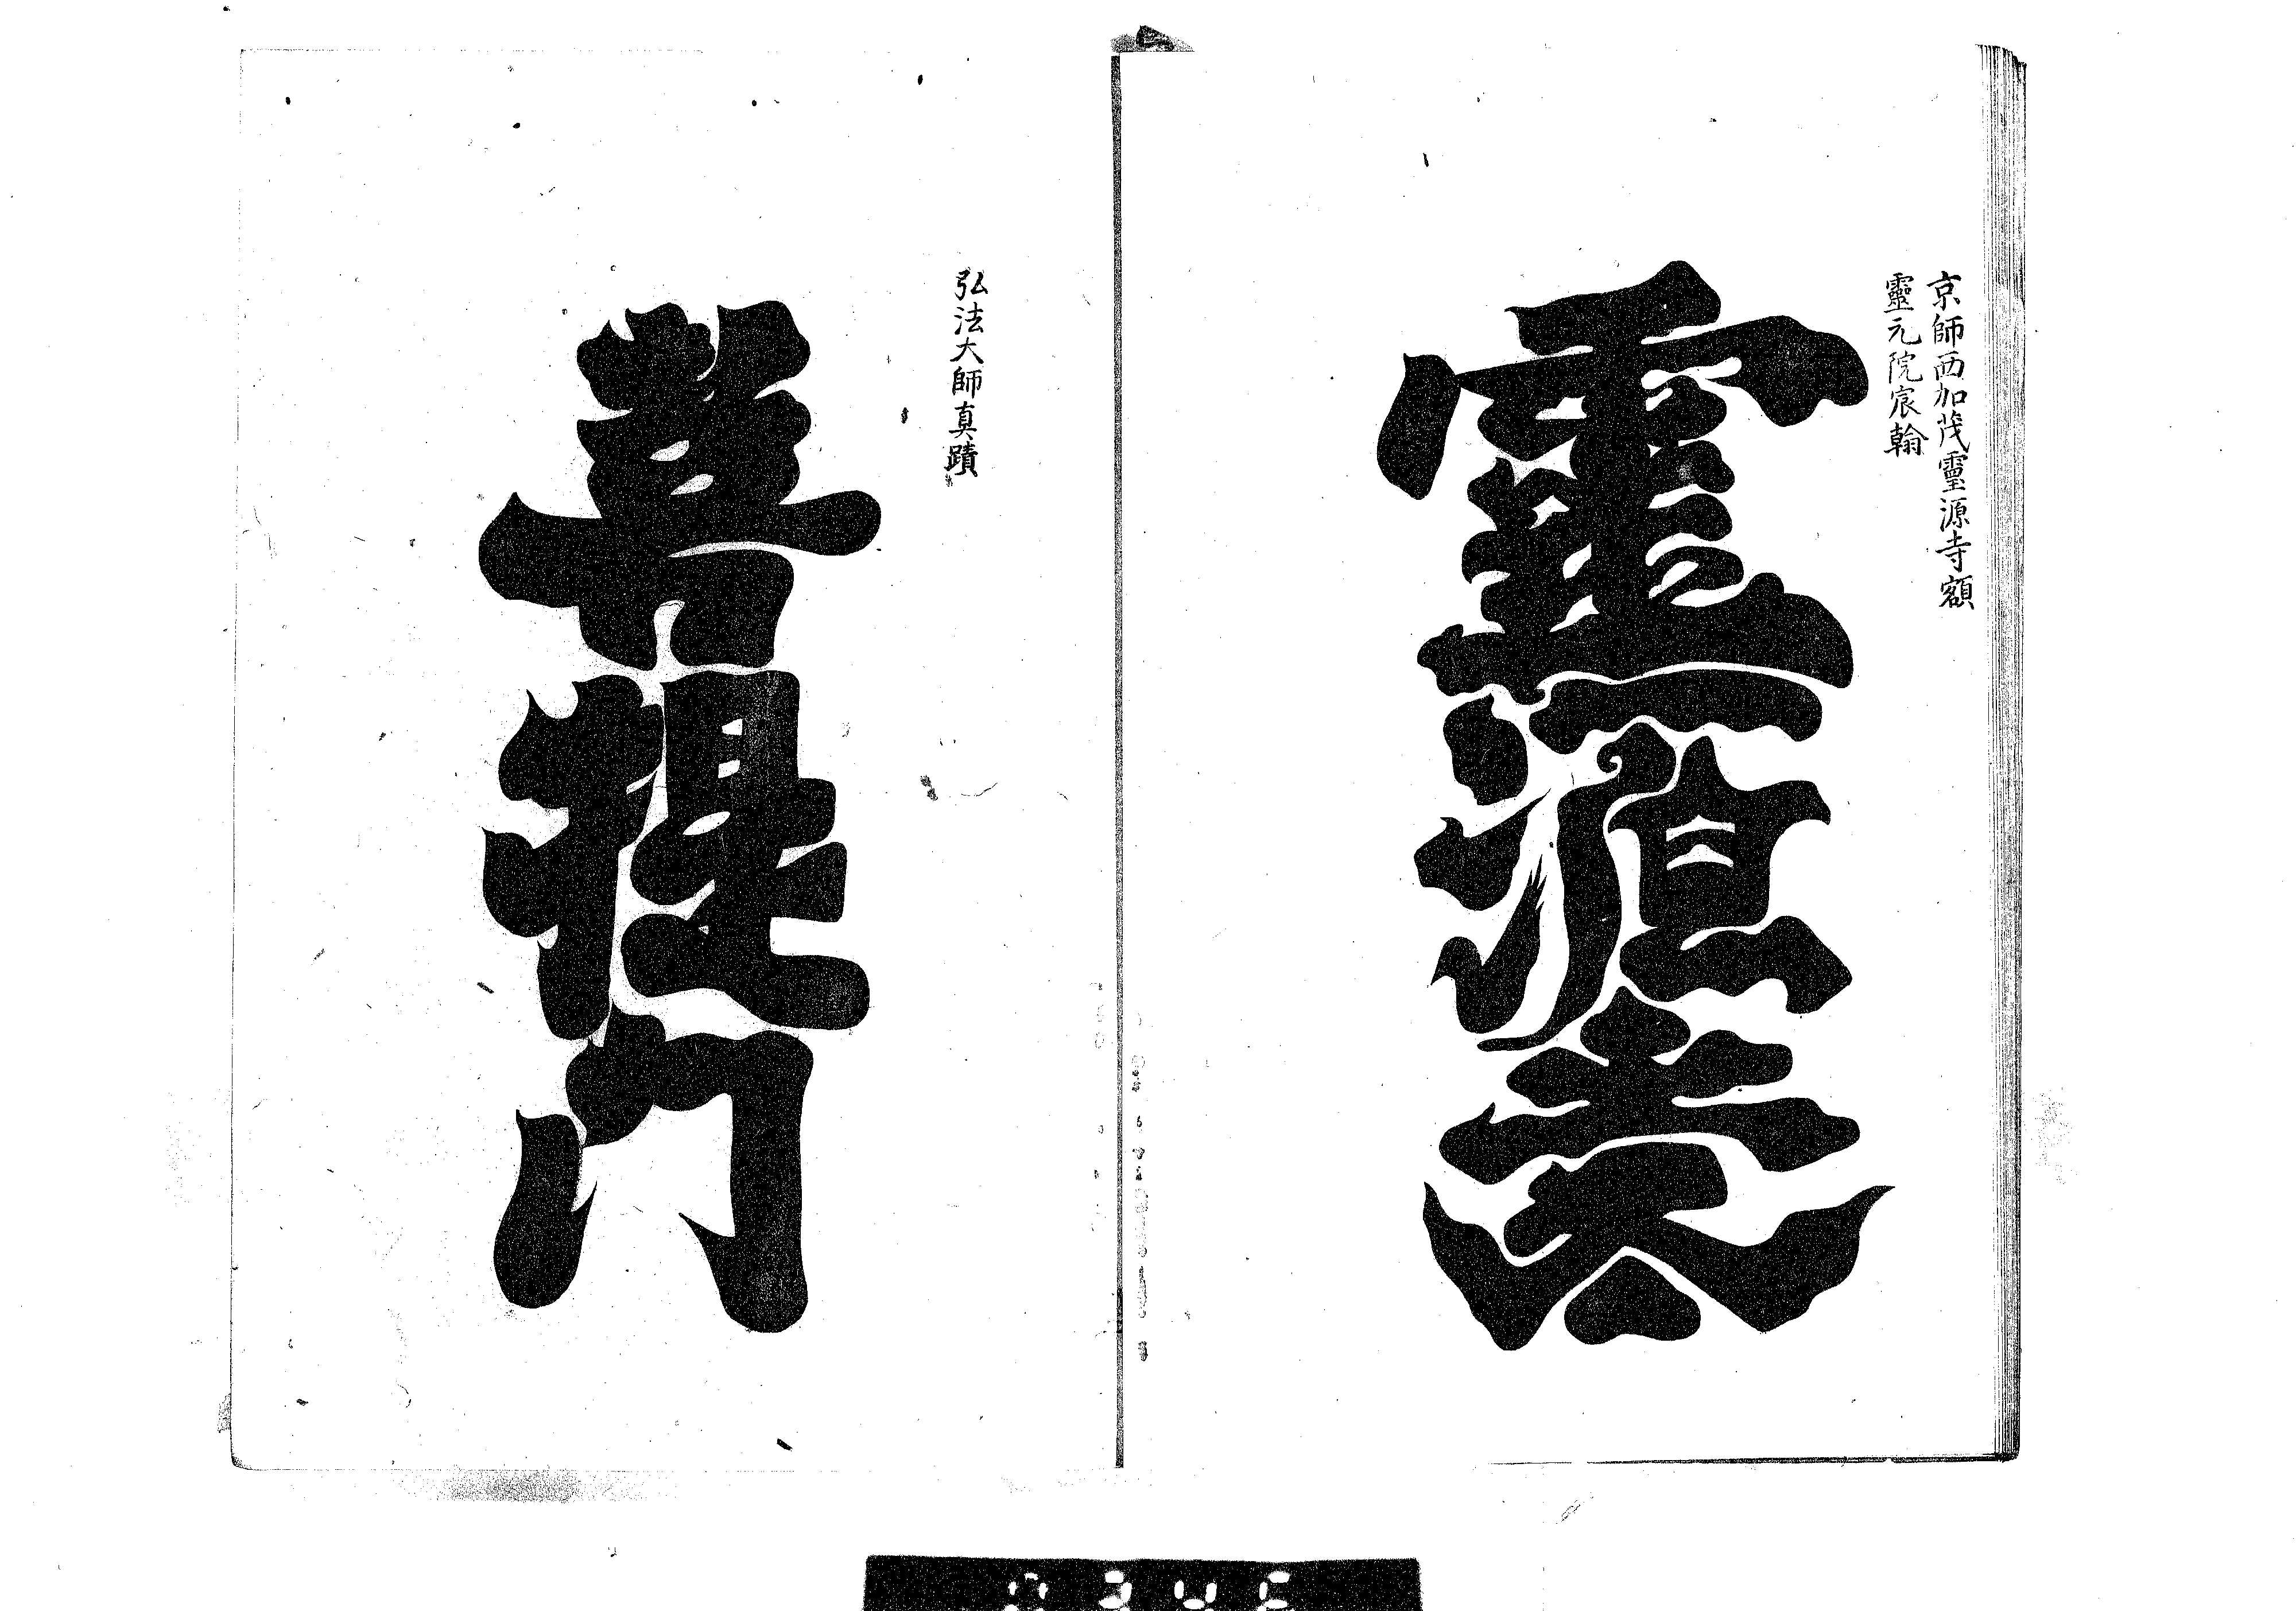 京師西加茂靈源寺額
靈元院宸翰
靈源
弘法大師真蹟
菩提門